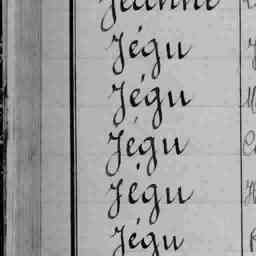 Jeanne
Jégu
Jégu
Jégu
Jégu
Jégu